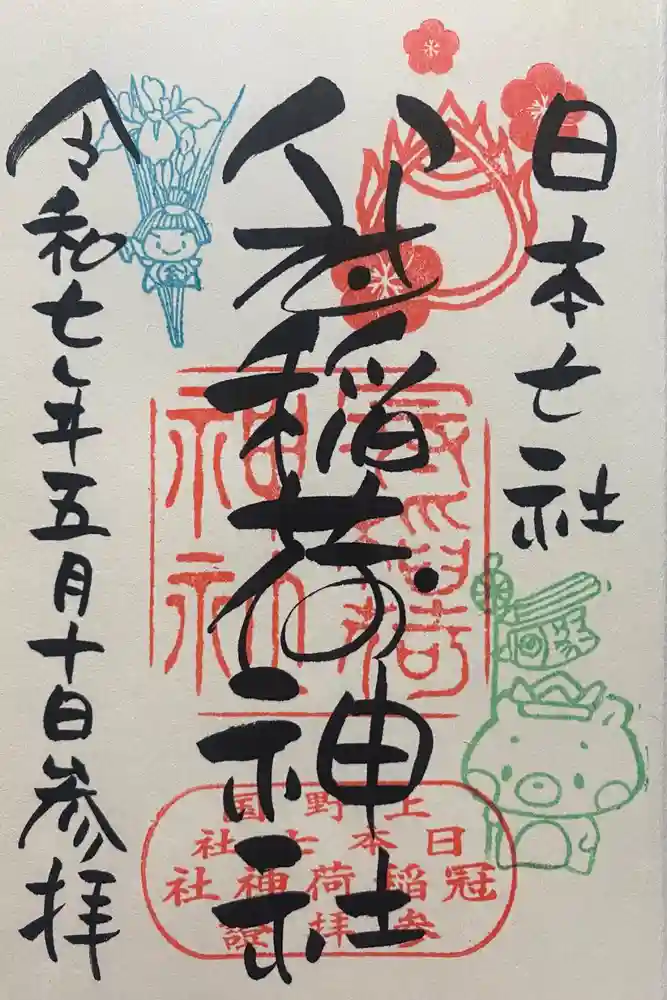 日本七社
冠稲荷神社
令和七年五月十日参拝
冠稲荷
神社
上野国
日本七社
冠稲荷神社
参拝證